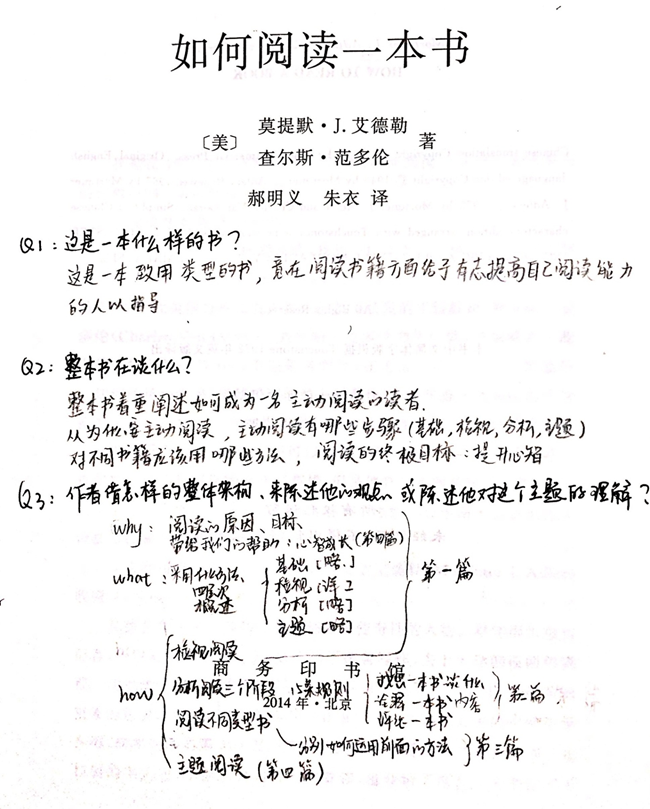 如何阅读一本书
〔美〕
莫提默·J.艾德勒
查尔斯·范多伦
著
郝明义 朱衣 译
Q1：这是一本什么样的书？
这是一本致用类型的书，意在阅读书籍方面给予有志提高自己阅读能力
的人以指导
Q2：整本书在谈什么？
整本书着重阐述如何成为一名主动阅读的读者．
从为什么要主动阅读，主动阅读有哪些步骤（基础，检视，分析，主题）
对不同书籍应该用哪些方法，阅读的终极目标：提升心智
Q3：作者借怎样的整体架构、来陈述他的观点 或陈述他对这个主题的理解？
why：阅读的原因、目标
带给我们的帮助：心智成长（第四篇）
what：采用什么方法
四层次
概述
基础［略．］
检视［详］
分析［略］
主题［略］
第一篇
how
检视阅读
商务印书馆
分析阅读三个阶段 15条规则
2014年·北京
一本书谈什么
一本书内容
评论一本书
第二篇
阅读不同类型书
分别如何运用前面的方法
第三篇
主题阅读（第四篇）